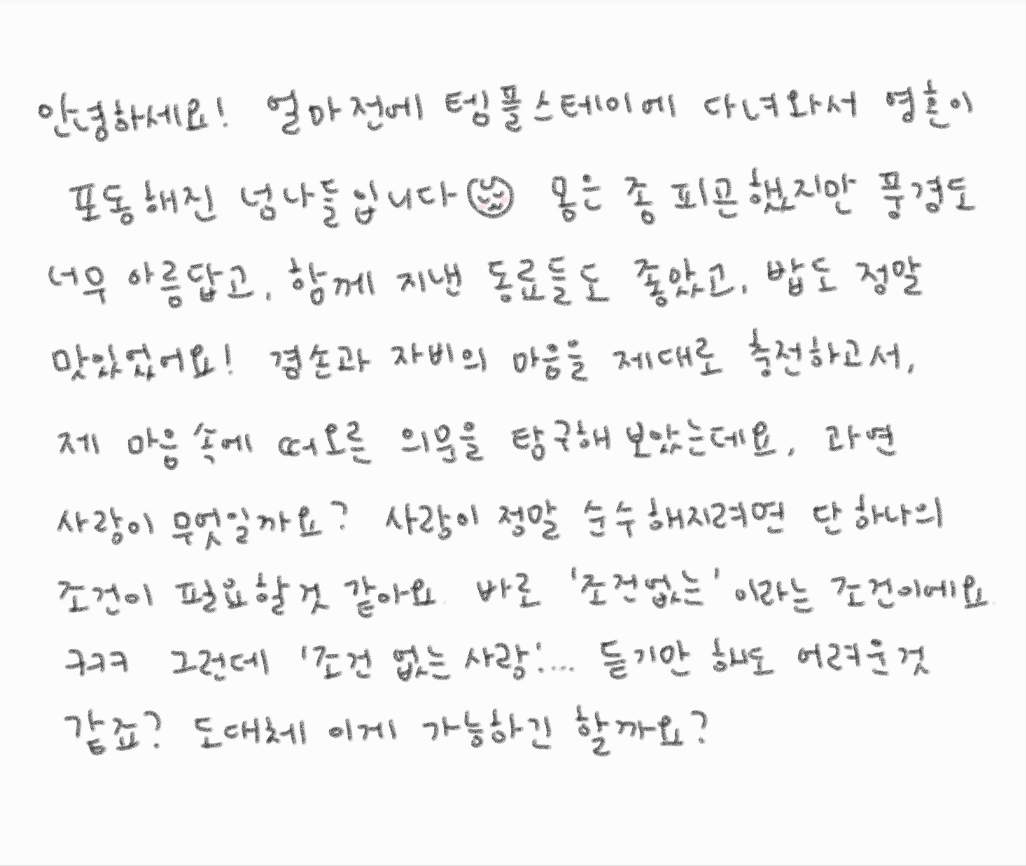 안녕하세요! 얼마전에 템플스테이에 다녀와서 영혼이
포동해진 넘나들입니다
몸은 좀 피곤했지만 풍경도
너무 아름답고, 함께 지낸 동료들도 좋았고, 밥도 정말
맛있었어요! 겸손과 자비의 마음을 제대로 충전하고서,
제 마음 속에 떠오른 의문을 탐구해 보았는데요, 과연
사랑이 무엇일까요? 사랑이 정말 순수해지려면 단 하나의
조건이 필요할 것 같아요 바로 '조건없는' 이라는 조건이에요
ㅋㅋㅋ 그런데 '조건 없는 사랑'... 듣기만 해도 어려운 것
같죠? 도대체 이게 가능하긴 할까요?